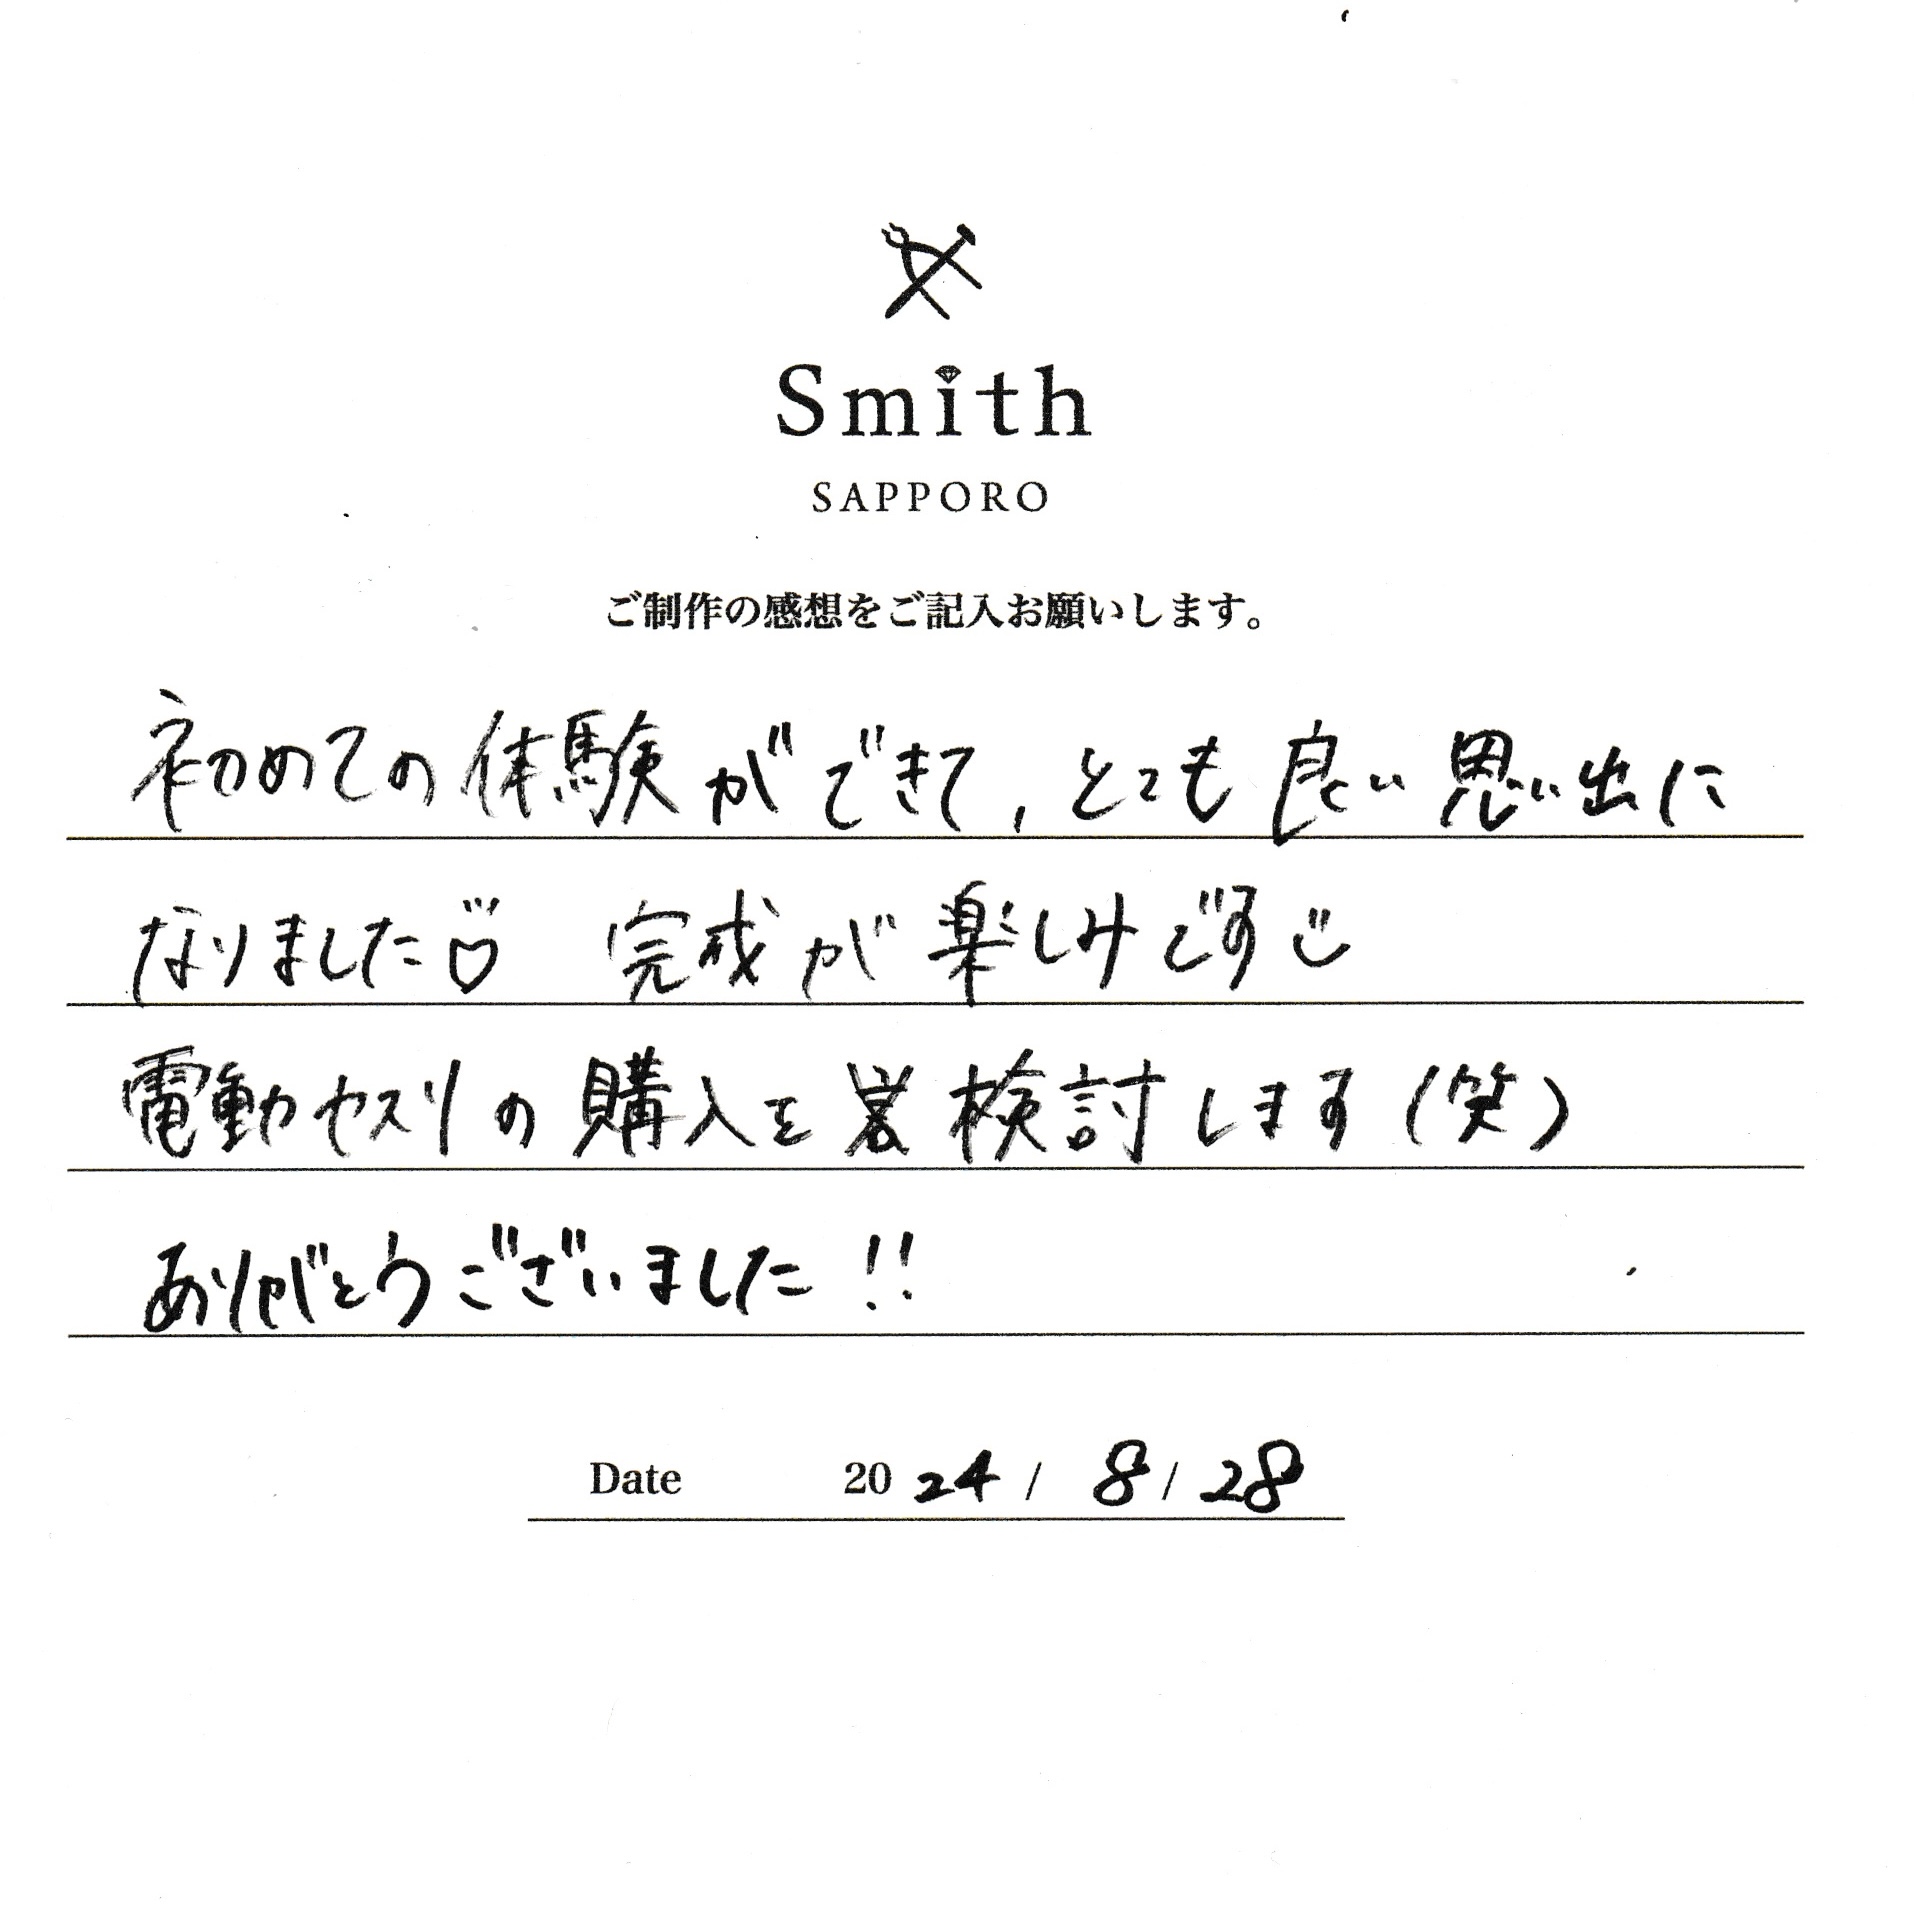 Smith
SAPPORO
ご制作の感想をご記入お願いします。
初めての体験ができて，とても良い思い出に
なりました♡ 完成が楽しみです
電動ヤスリの購入を検討します（笑）
ありがとうございました!!
Date 2024 / 8 / 28